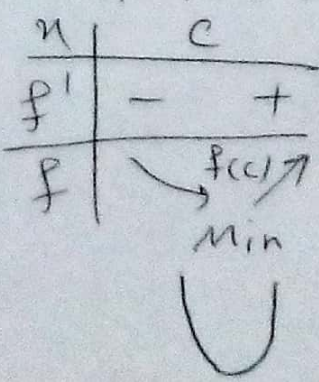 x c
f' - +
f f(c)
Min